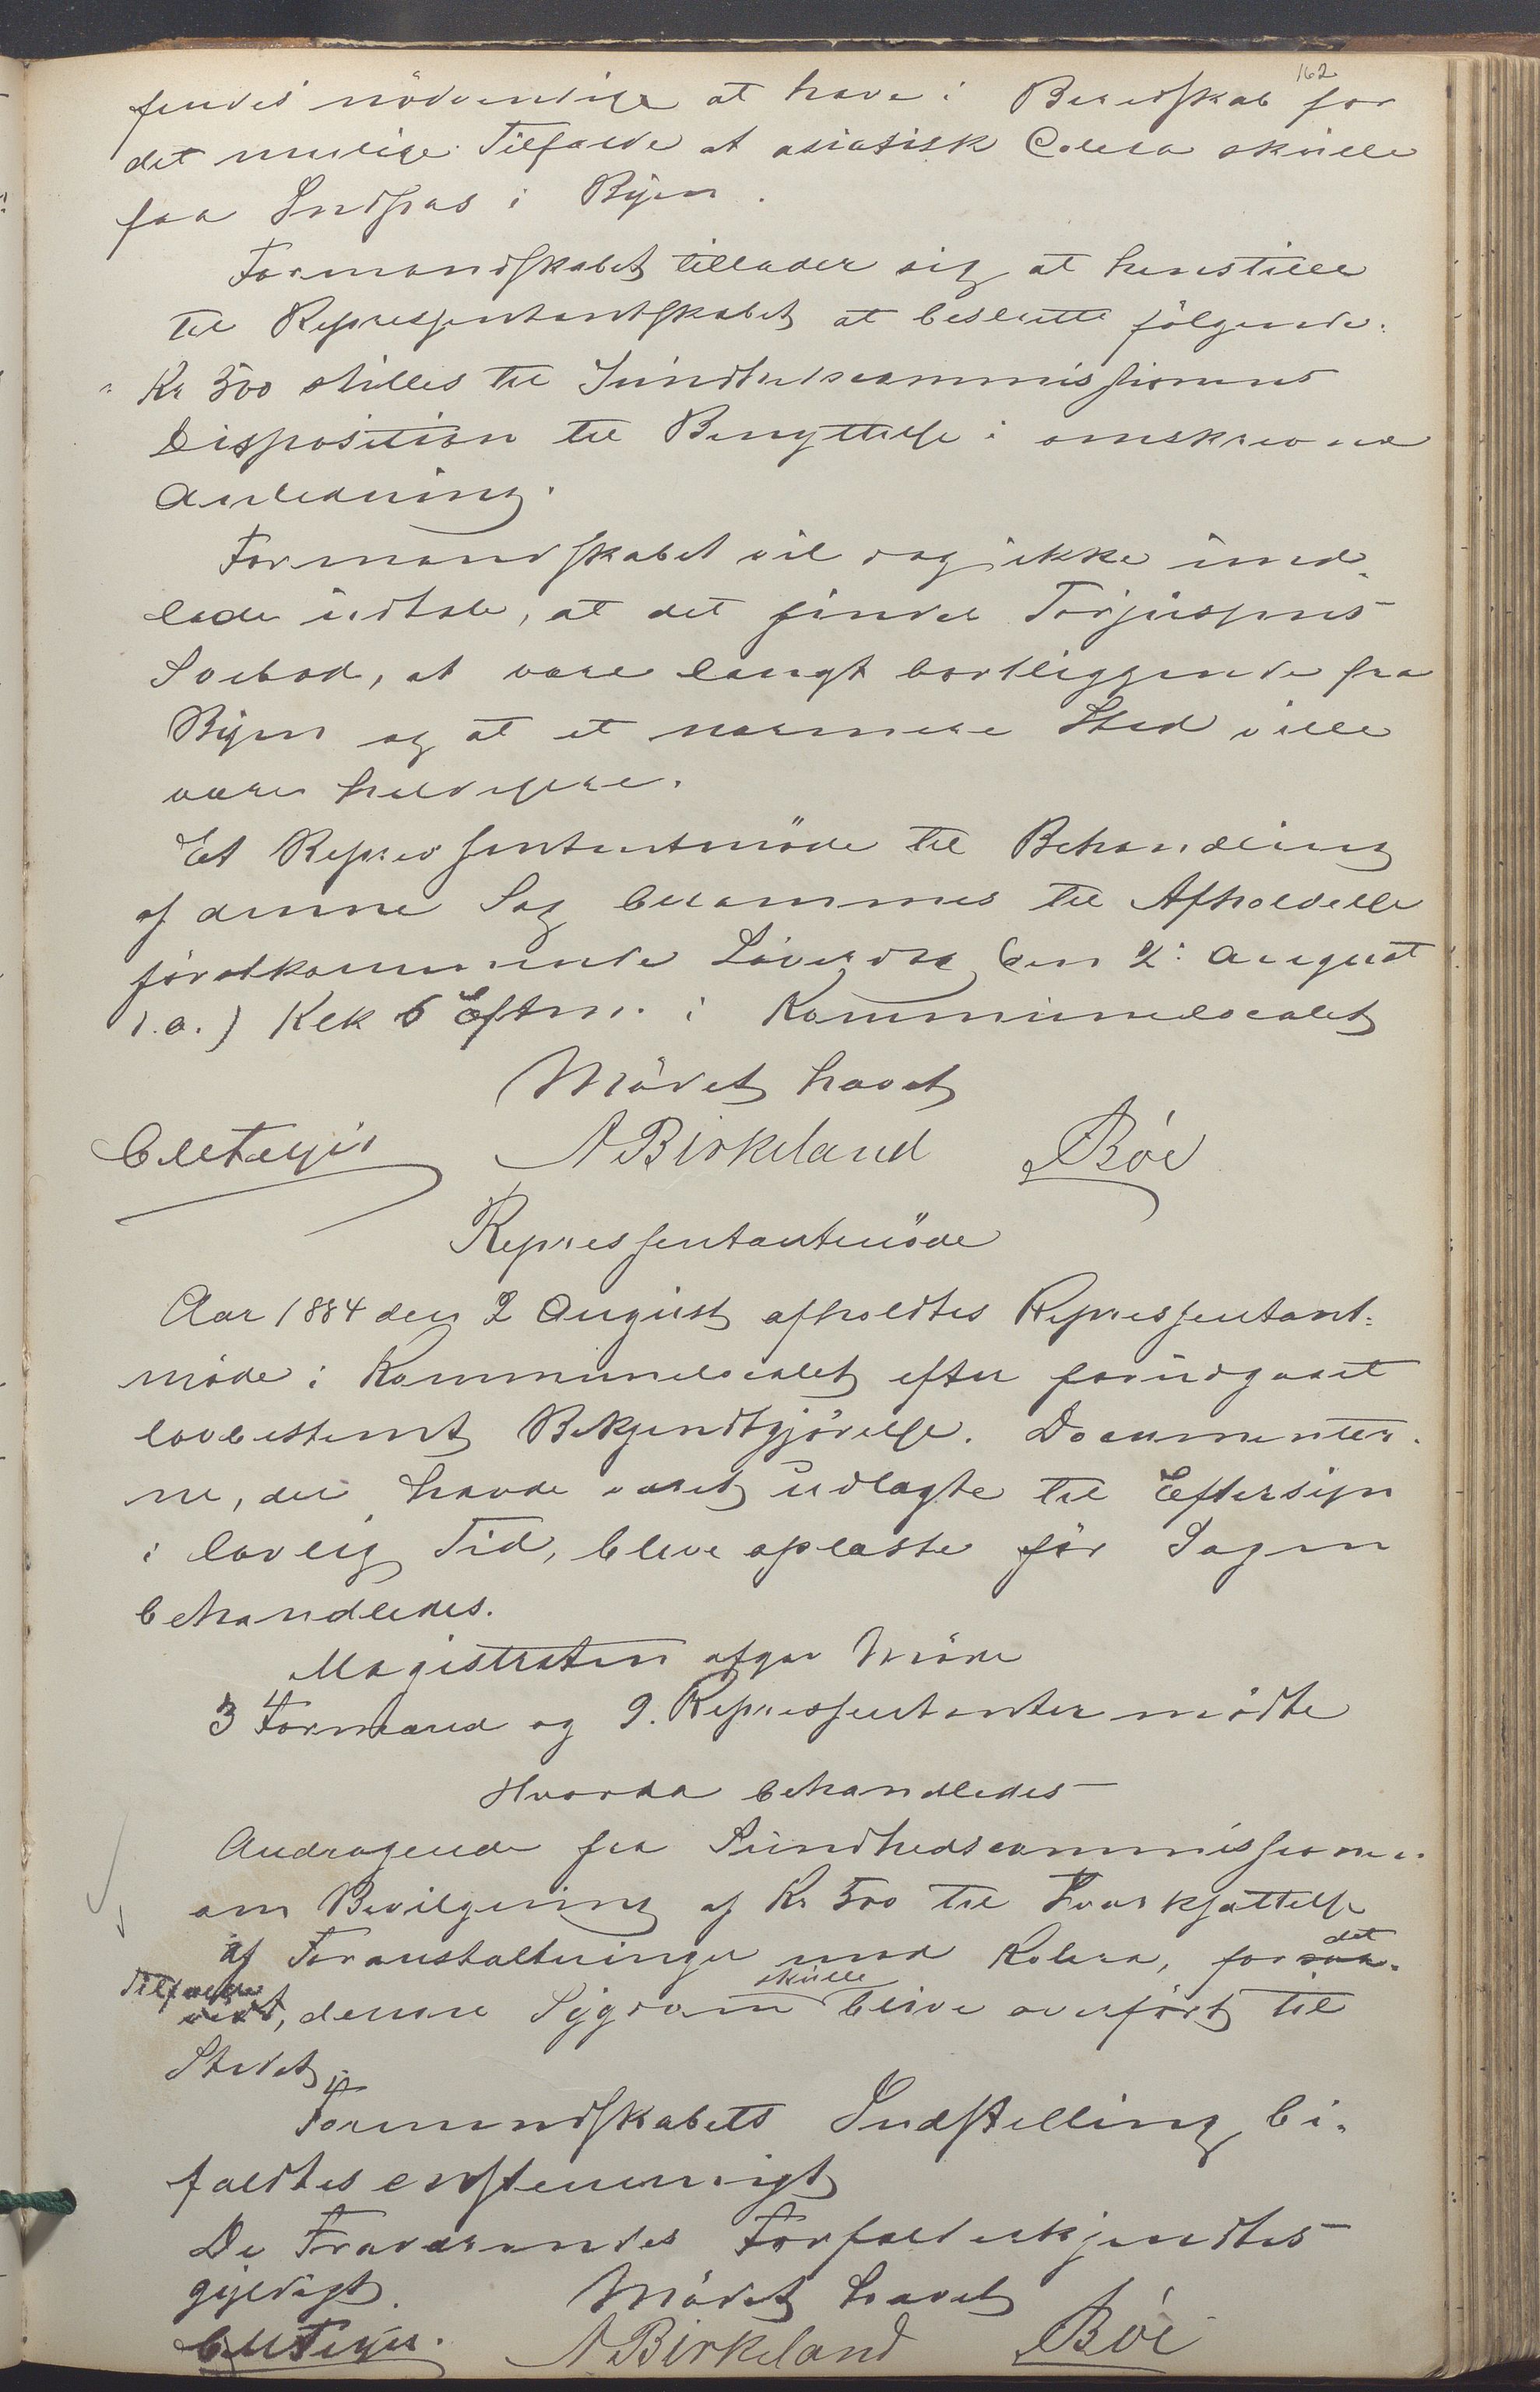 162
findes nödvendige at have i Beredskab for
det mulige Tilfælde at asiatisk Colera skulle
faa Indpas i Byen.
Formandskabet tillader sig at henstille
til Repressentantskabet at beslutte følgende:
"Kr 500 stilles til Sundhedscommissionens
Disposition til Benyttelse i omskrevne
Anledning.
Formandskabet vil dog ikke und-
lade udtale, at det finder Torjussens
Søebod, at være langt bortliggende fra
Byen og at et nærmere Sted ville
være heldigere.
Et Repressentantmöde til Behandling
af denne Sag berammes til Afholdelse
förstkommende Löverdag (den 2: August
d.a.) Klk 6 Eftm. i Kommunelocalet
Mödet hævet
A Birkeland Bøe
Repressentantmöde
Aar 1884 den 2 August afholdtes Repressentant-
möde i Kommunelocalet efter forudgaaet
lovbestemt Bekjendtgjörelse. Documenter-
ne, der havde været udlagte til Eftersyn
i lovlig Tid, bleve oplæste før Sagen
behandledes.
Magistraten afgav Möde
3 Formænd og 9. Repressentanter mödte
Hvorda behandledes
Andragende fra Sundhedscommissionen
om Bevilgning af Kr 500 til Iværksættelse
af Foranstaltninger mod Kolera, for saa- det
Tilfælde vidt, denne Sygdom skulle blive overført til
Stedet.
Formandskabets Indstilling bi-
faldtes enstemmigt
De Fraværendes Forfald erkjendtes
gyldigt. Mödet hævet
A Birkeland Bøe